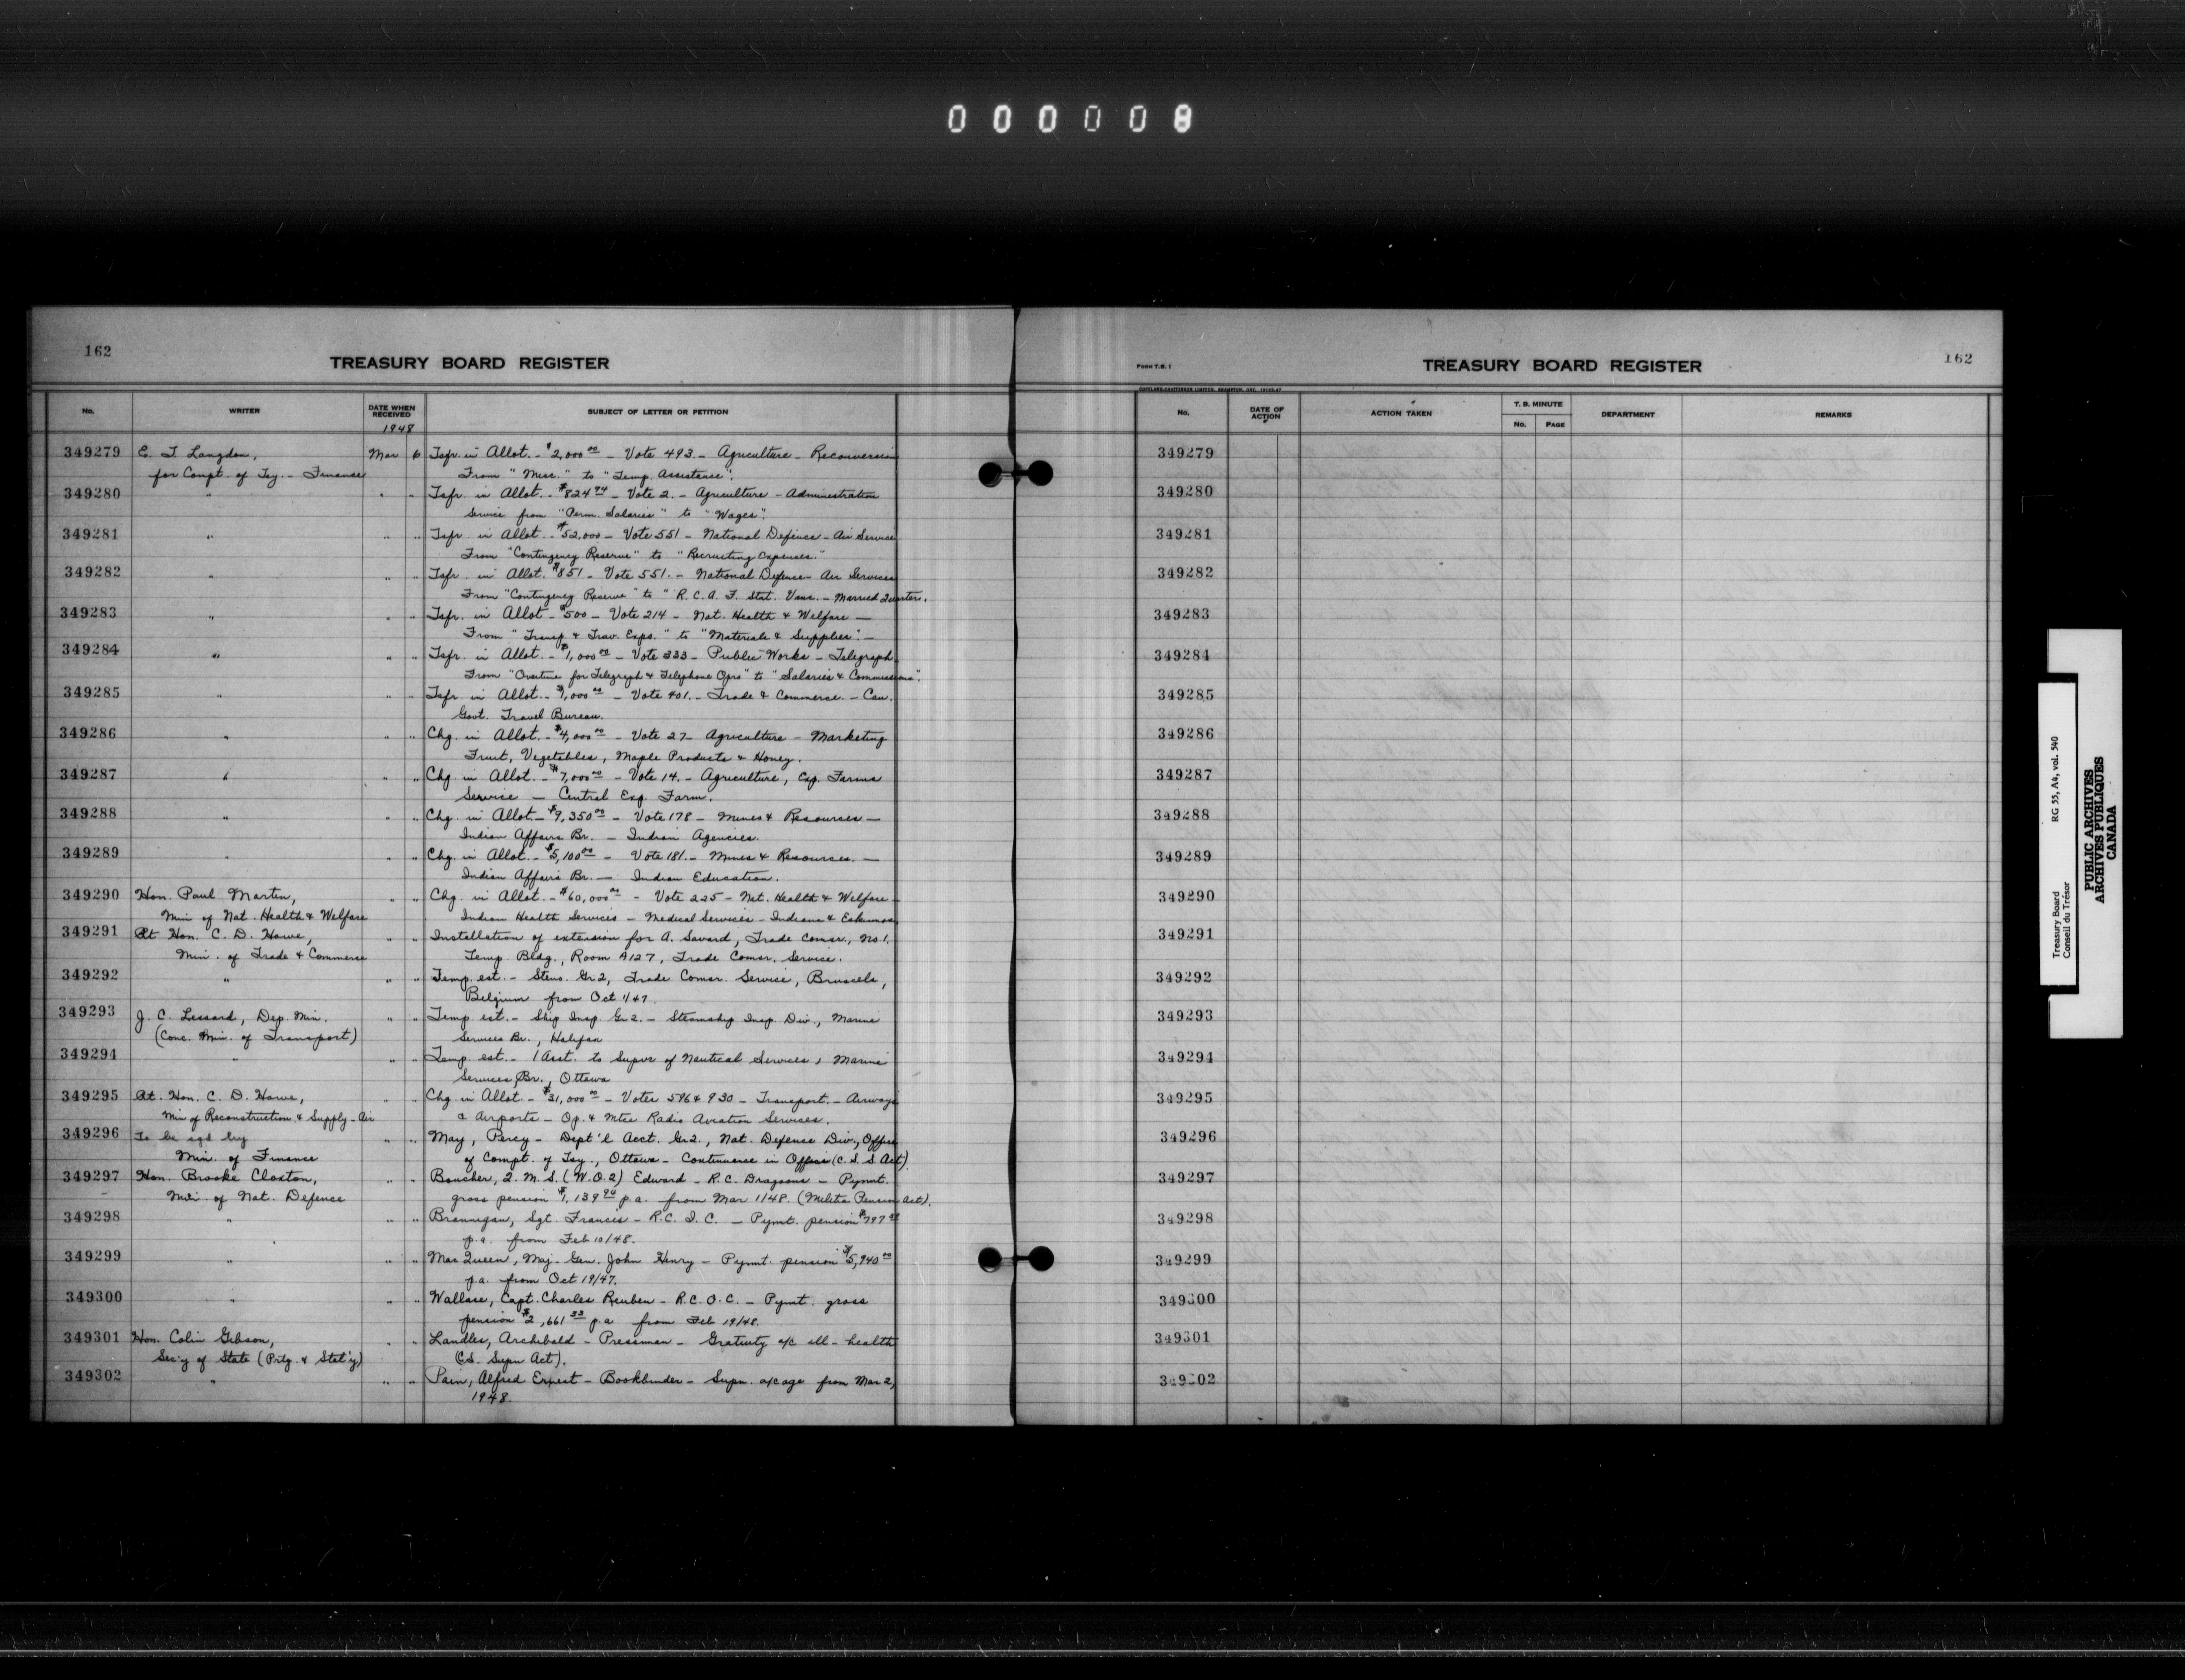 000008
162
TREASURY BOARD REGISTER
No. WRITER DATE WHEN RECEIVED SUBJECT OF LETTER OR PETITION
1948
349279 E. T. Langdon, Mar 6 Tsfr. in Allot. - $2,000.00 - Vote 493. - Agriculture - Reconversion
for Compt. of Tsy. - Finance From "Misc." to "Temp. Assistance".
349280 " " " Tsfr. in Allot. - $824.94 - Vote 2. - Agriculture - Administration
Service from "Perm. Salaries" to "Wages".
349281 " " " Tsfr. in Allot. - $52,000 - Vote 551 - National Defence - Air Service
From "Contingency Reserve" to "Recruiting Expenses."
349282 " " " Tsfr. in Allot. $851 - Vote 551. - National Defence - Air Services
From "Contingency Reserve" to "R.C.A.F. Stat. Vanc. - Married Quarters.
349283 " " " Tsfr. in Allot - $500 - Vote 214 - Nat. Health & Welfare -
From "Transp. & Trav. Exps." to "Materials & Supplies". -
349284 " " " Tsfr. in Allot. - $1,000.00 - Vote 333 - Public Works - Telegraph
From "Overtime for Telegraph & Telephone Oprs" to "Salaries & Commissions".
349285 " " " Tsfr. in Allot. - $1,000.00 - Vote 401. - Trade & Commerce. - Can.
Govt. Travel Bureau.
349286 " " " Chg. in Allot. - $4,000.00 - Vote 27 - Agriculture - Marketing
Fruit, Vegetables, Maple Products & Honey.
349287 " " " Chg. in Allot. - $7,000.00 - Vote 14. - Agriculture, Exp. Farms
Service - Central Exp. Farm.
349288 " " " Chg. in Allot - $9,350.00 - Vote 178 - Mines & Resources -
Indian Affairs Br. - Indian Agencies.
349289 " " " Chg. in Allot. - $5,100.00 - Vote 181. - Mines & Resources. -
Indian Affairs Br. - Indian Education.
349290 Hon. Paul Martin, " " Chg. in Allot. - $60,000.00 - Vote 225 - Nat. Health & Welfare -
Min of Nat. Health & Welfare Indian Health Services - Medical Services - Indians & Eskimos
349291 Rt Hon. C. D. Howe, " " Installation of extension for A. Savard, Trade Comsr., No 1.
Min. of Trade & Commerce Temp. Bldg., Room A127, Trade Comsr. Service.
349292 " " " Temp. est. - Steno. Gr 2, Trade Comsr. Service, Brussels,
Belgium from Oct 1/47.
349293 J. C. Lessard, Dep. Min. " " Temp. est. - Ship Insp. Gr 2. - Steamship Insp. Div., Marine
(Conc. Min. of Transport) Services Br., Halifax
349294 " " " Temp. est. - 1 Asst. to Supvr of Nautical Services, Marine
Services Br., Ottawa
349295 Rt. Hon. C. D. Howe, " " Chg in Allot. - $31,000.00 - Votes 596 & 930 - Transport. - Airways
Min of Reconstruction & Supply - Air & Airports - Op. & Mtce Radio Aviation Services.
349296 To be sgd by " " May, Percy - Dept'l Acct. Gr 2., Nat. Defense Div., Office
Min. of Finance of Compt. of Tsy., Ottawa - Continuance in Office (C.S.S Act)
349297 Hon. Brooke Claxton, " " Boucher, Q.M.S. (W.O.2) Edward - R.C. Dragoons - Pymt.
Min. of Nat. Defence gross pension $1,139.94 p.a. from Mar 1/48. (Militia Pension Act).
349298 " " " Brannigan, Sgt. Francis - R.C.I.C. - Pymt. pension $797
p.a. from Feb 10/48.
349299 " " " MacQueen, Maj-Gen. John Henry - Pymt. pension $5,940.00
p.a. from Oct 19/47.
349300 " " " Wallace, Capt. Charles Reuben - R.C.O.C. - Pymt. gross
pension $2,661.33 p.a from Feb 19/48.
349301 Hon. Colin Gibson, " " Landles, Archibald - Pressman - Gratuity a/c ill-health
Sec'y of State (Prtg. & Stat'y) (C.S. Supn Act).
349302 " " " Pain, Alfred Ernest - Bookbinder - Supn. a/c age from Mar 2,
1948.
FORM T.B. 1
TREASURY BOARD REGISTER
162
No. DATE OF ACTION ACTION TAKEN T. B. MINUTE DEPARTMENT REMARKS
No. PAGE
349279
349280
349281
349282
349283
349284
349285
349286
349287
349288
349289
349290
349291
349292
349293
349294
349295
349296
349297
349298
349299
349300
349301
349302
Treasury Board RG 55, A4, vol. 540
Conseil du Trésor
PUBLIC ARCHIVES
ARCHIVES PUBLIQUES
CANADA